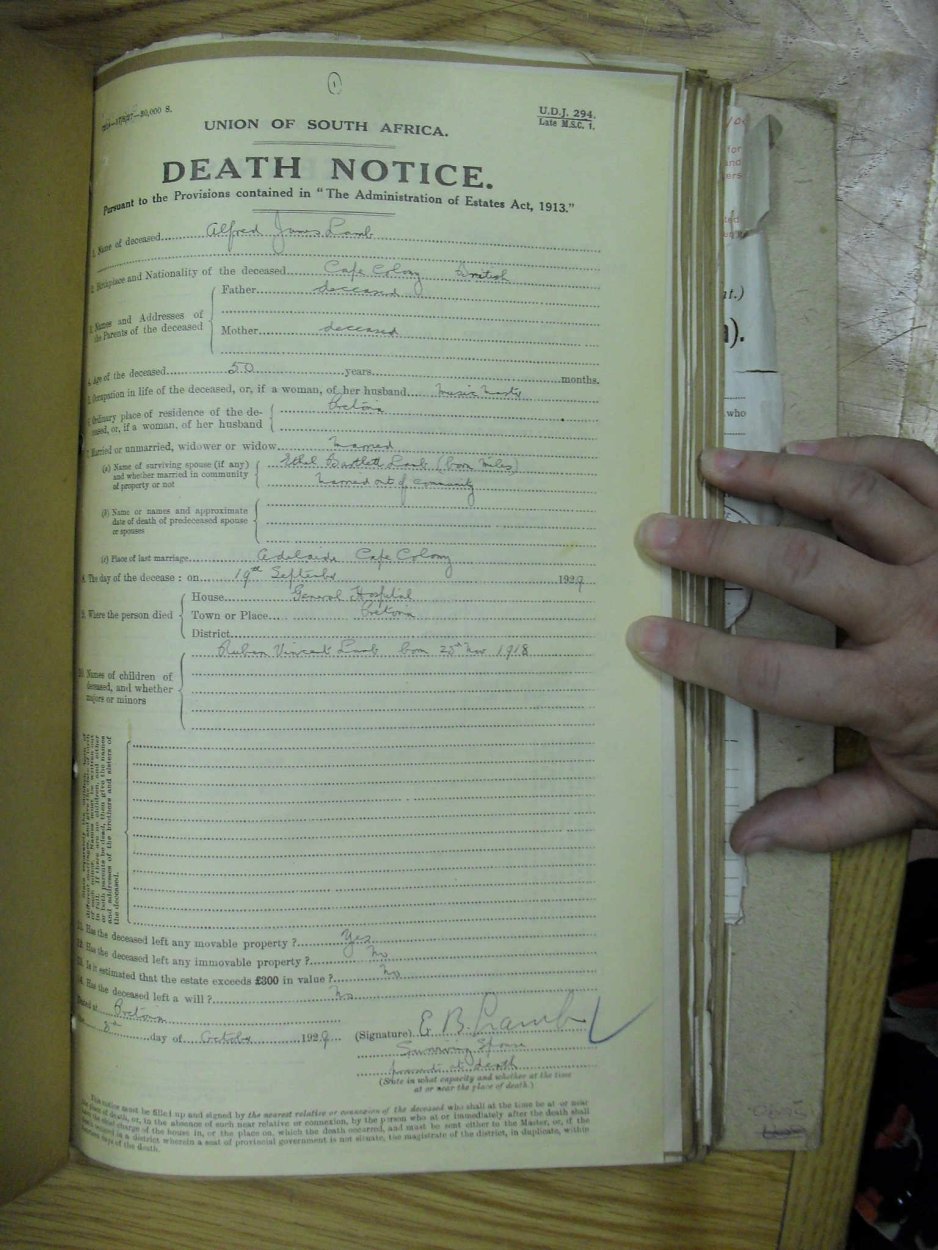 1
30,000 S.
U.D.J. 294.
Late M.S.C. 1.
UNION OF SOUTH AFRICA.
DEATH NOTICE.
Pursuant to the Provisions contained in "The Administration of Estates Act, 1913."
1. Name of deceased Alfred James Lamb
2. Birthplace and Nationality of the deceased Cape Colony British
3. Names and Addresses of the Parents of the deceased
Father deceased
Mother deceased
4. Age of the deceased 50 years months.
5. Occupation in life of the deceased, or, if a woman, of her husband Music Master
6. Ordinary place of residence of the deceased, or, if a woman, of her husband Pretoria
7. Married or unmarried, widower or widow Married
(a) Name of surviving spouse (if any) and whether married in community of property or not
Ethel Bartlett Lamb (born Miles)
Married out of community
(b) Name or names and approximate date of death of predeceased spouse or spouses
(c) Place of last marriage Adelaide Cape Colony
8. The day of the decease: on 19th September 1929
9. Where the person died
House General Hospital
Town or Place Pretoria
District
10. Names of children of deceased, and whether majors or minors
Ruben Vincent Lamb born 25th Nov 1918
or both parents be dead, then give the names
and addresses of the brothers and sisters of
the deceased.
11. Has the deceased left any movable property? Yes
12. Has the deceased left any immovable property? No
13. Is it estimated that the estate exceeds £300 in value? No
14. Has the deceased left a will? No
Dated at Pretoria
8th day of October 1929
(Signature) E. B. Lamb
Surviving Spouse
present at death
(State in what capacity and whether at the time
at or near the place of death.)
This notice must be filled up and signed by the nearest relative or connexion of the deceased who shall at the time be at or near
the place of death, or, in the absence of such near relative or connexion, by the person who at or immediately after the death shall
have the chief charge of the house in, or the place on, which the death occurred, and must be sent either to the Master, or, if the
death occurred in a district wherein a seat of provincial government is not situate, the magistrate of the district, in duplicate, within
fourteen days of the death.
for
who